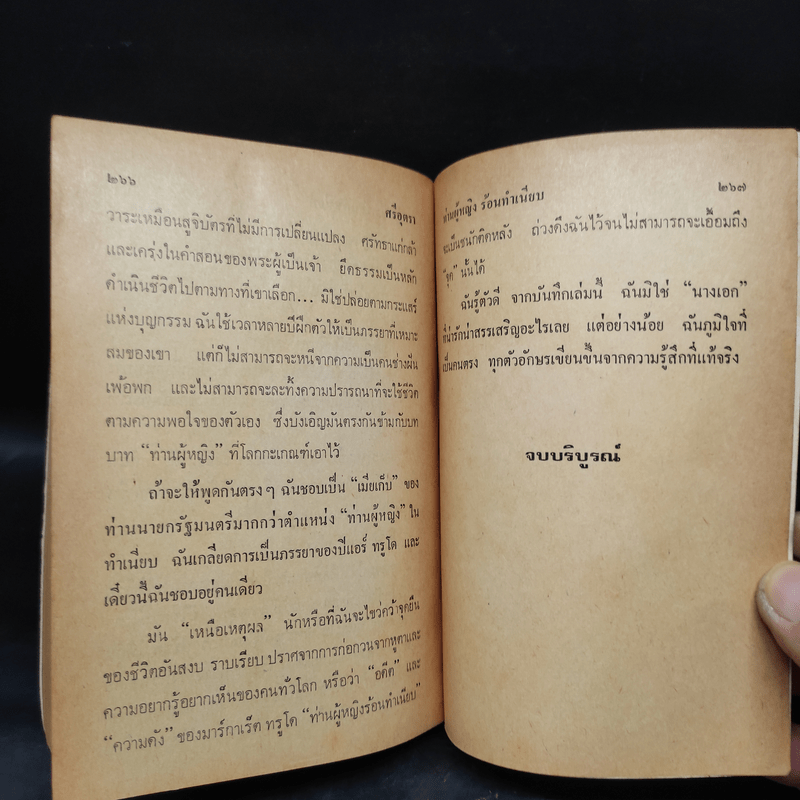 ๒๖๖
ศรีอุตรา
วาระเหมือนสูจิบัตรที่ไม่มีการเปลี่ยนแปลง ศรัทธาแก่กล้า
และเคร่งในคำสอนของพระผู้เป็นเจ้า ยึดธรรมเป็นหลัก
ดำเนินชีวิตไปตามทางที่เขาเลือก... มิใช่ปล่อยตามกระแสร์
แห่งบุญกรรม ฉันใช้เวลาหลายปีฝึกตัวให้เป็นภรรยาที่เหมาะ
สมของเขา แต่ก็ไม่สามารถจะหนีจากความเป็นคนช่างฝัน
เพ้อพก และไม่สามารถจะละทิ้งความปรารถนาที่จะใช้ชีวิต
ตามความพอใจของตัวเอง ซึ่งบังเอิญมันตรงกันข้ามกับบท
บาท “ท่านผู้หญิง” ที่โลกกะเกณฑ์เอาไว้
ถ้าจะให้พูดกันตรงๆ ฉันชอบเป็น “เมียเก็บ” ของ
ท่านนายกรัฐมนตรีมากกว่าตำแหน่ง “ท่านผู้หญิง” ใน
ทำเนียบ ฉันเกลียดการเป็นภรรยาของปีแอร์ ทรูโด และ
เดี๋ยวนี้ฉันชอบอยู่คนเดียว
มัน “เหนือเหตุผล” นักหรือที่ฉันจะไขว่คว้าจุดยืน
ของชีวิตอันสงบ ราบเรียบ ปราศจากการก่อกวนจากหูตาและ
ความอยากรู้อยากเห็นของคนทั่วโลก หรือว่า “อดีต” และ
“ความดัง” ของมาร์กาเร็ต ทรูโด “ท่านผู้หญิงร้อนทำเนียบ”
ท่านผู้หญิง ร้อนทำเนียบ
๒๖๗
จะเป็นชนักติดหลัง ถ่วงดึงฉันไว้จนไม่สามารถจะเอื้อมถึง
“จุด” นั้นได้
ฉันรู้ตัวดี จากบันทึกเล่มนี้ ฉันมิใช่ “นางเอก”
ที่น่ารักน่าสรรเสริญอะไรเลย แต่อย่างน้อย ฉันภูมิใจที่
เป็นคนตรง ทุกตัวอักษรเขียนขึ้นจากความรู้สึกที่แท้จริง
จบบริบูรณ์